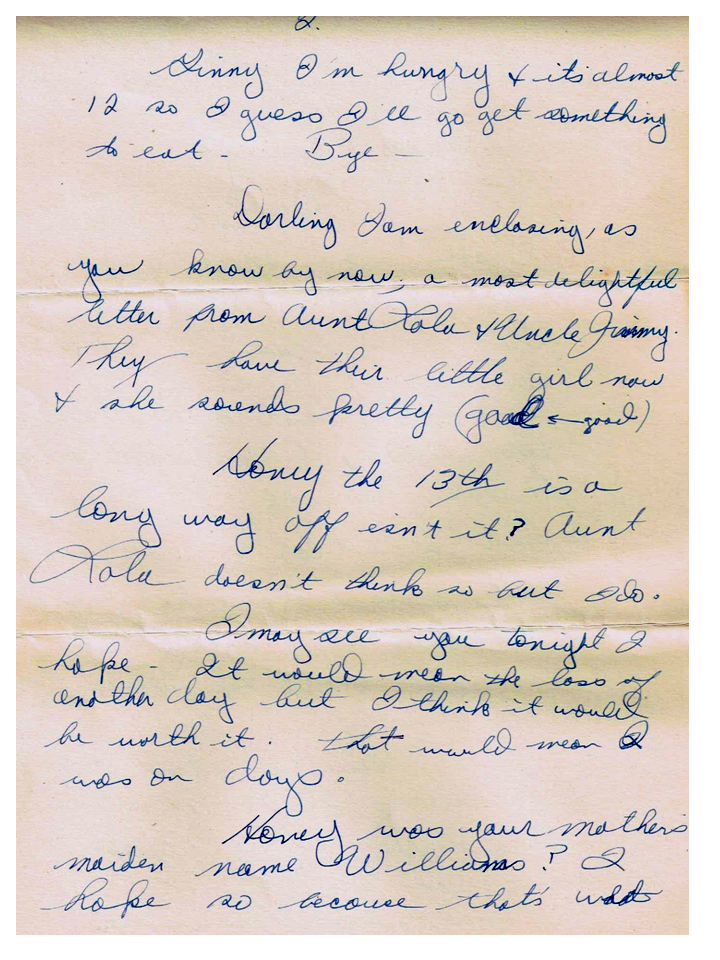 2.
Ginny I'm hungry & it's almost
12 so I guess I'll go get something
to eat - Bye —
Darling I am enclosing, as
you know by now, a most delightful
letter from Aunt Lola & Uncle Jimmy.
They have their little girl now
& she sounds pretty (good ← good)
Honey the 13th is a
long way off isn't it? Aunt
Lola doesn't think so but I do.
I may see you tonight I
hope - It would mean the loss of
another day but I think it would
be worth it. that would mean I
was on days.
Honey was your mother's
maiden name Williams? I
hope so because that's what